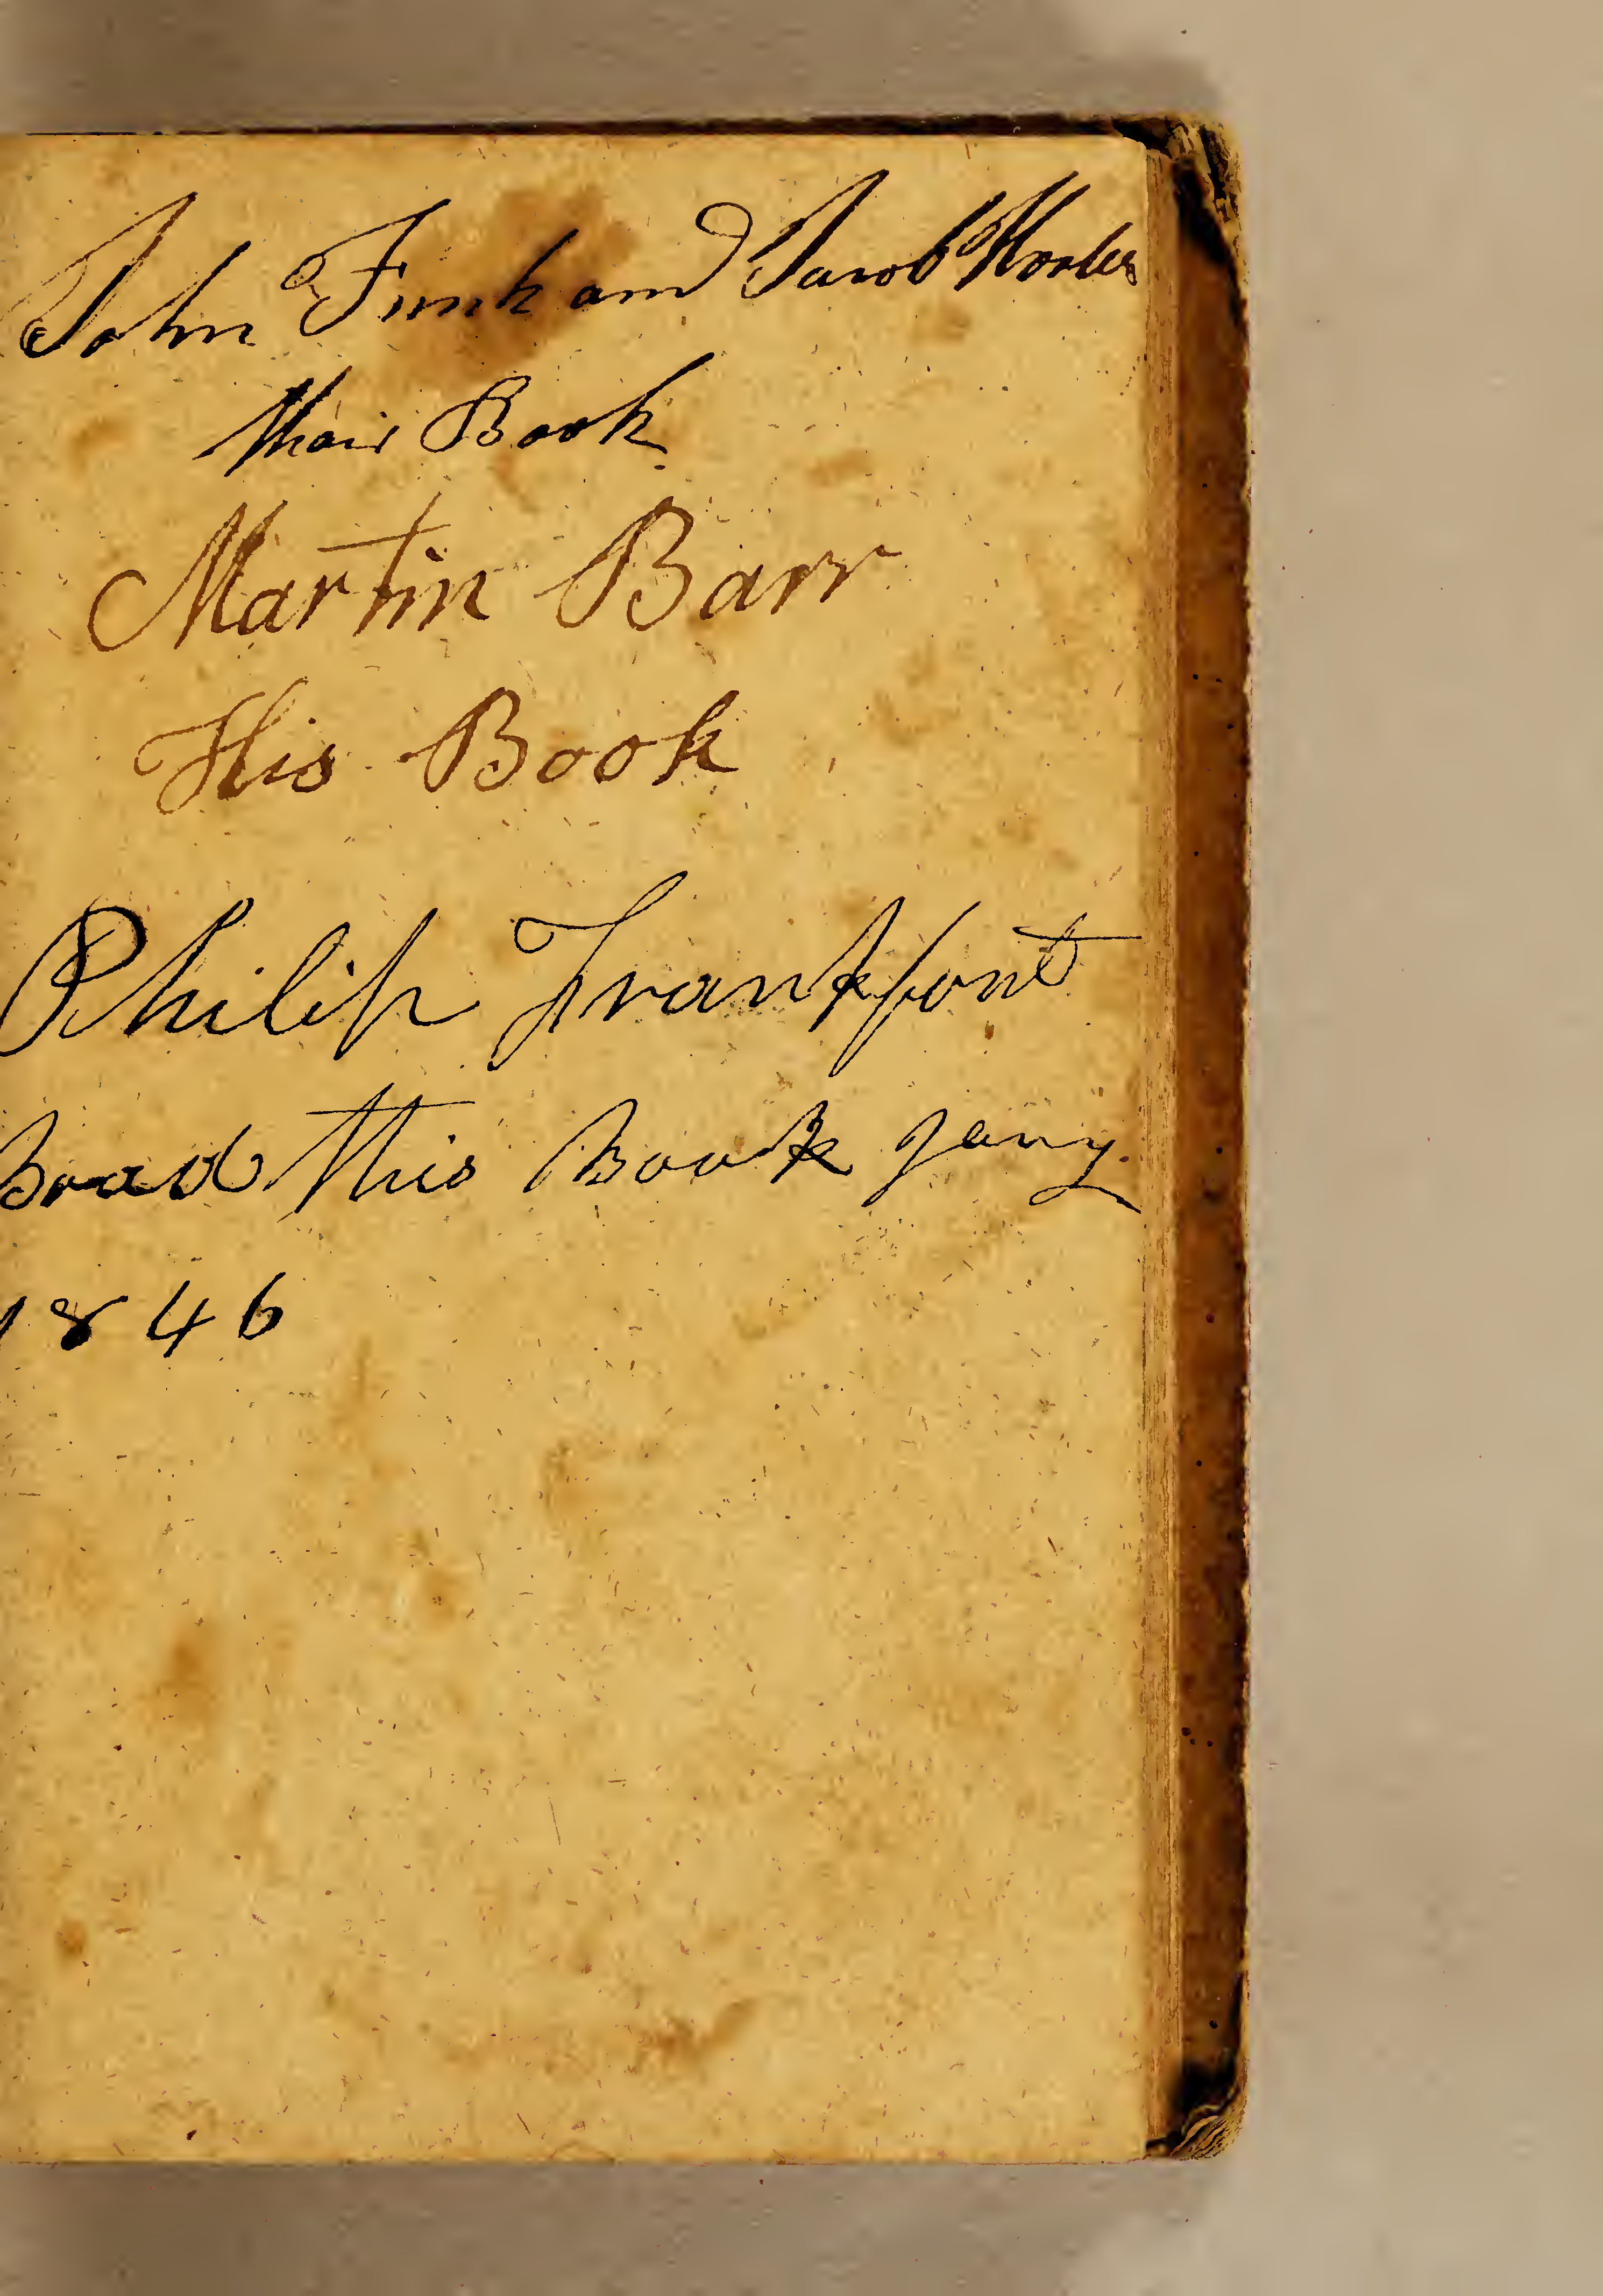 John Funk and Jacob
thair Book
Martin Barr
His Book
Philip Frankfont
this Book Jany
1846